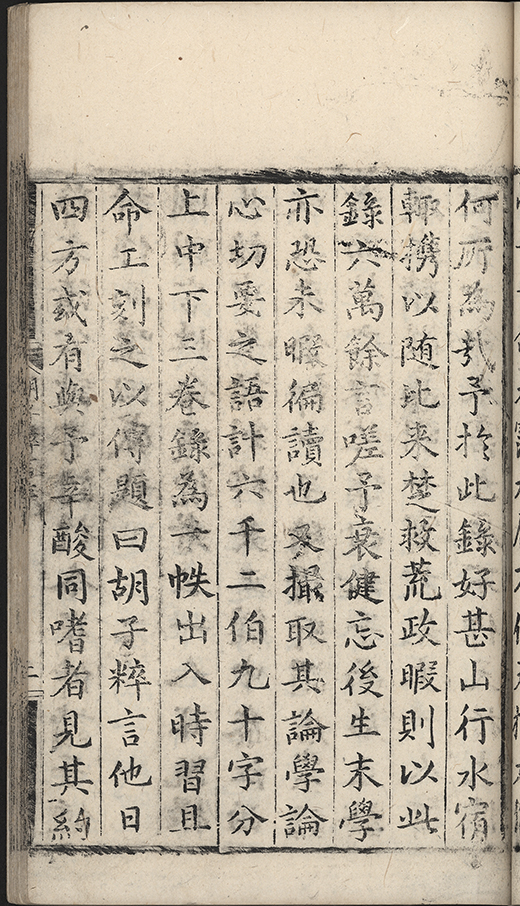 何所為哉予於此錄好甚山行水宿
輙携以随比来楚救荒政暇則以此
錄六萬餘言嗟予衰健忘後生末學
亦恐未暇徧讀也又撮取其論學論
心切要之語計六千二伯九十字分
上中下三卷錄為一帙出入時習且
命工刻之以傳題曰胡子粹言他日
四方或有與予辛酸同嗜者見其約